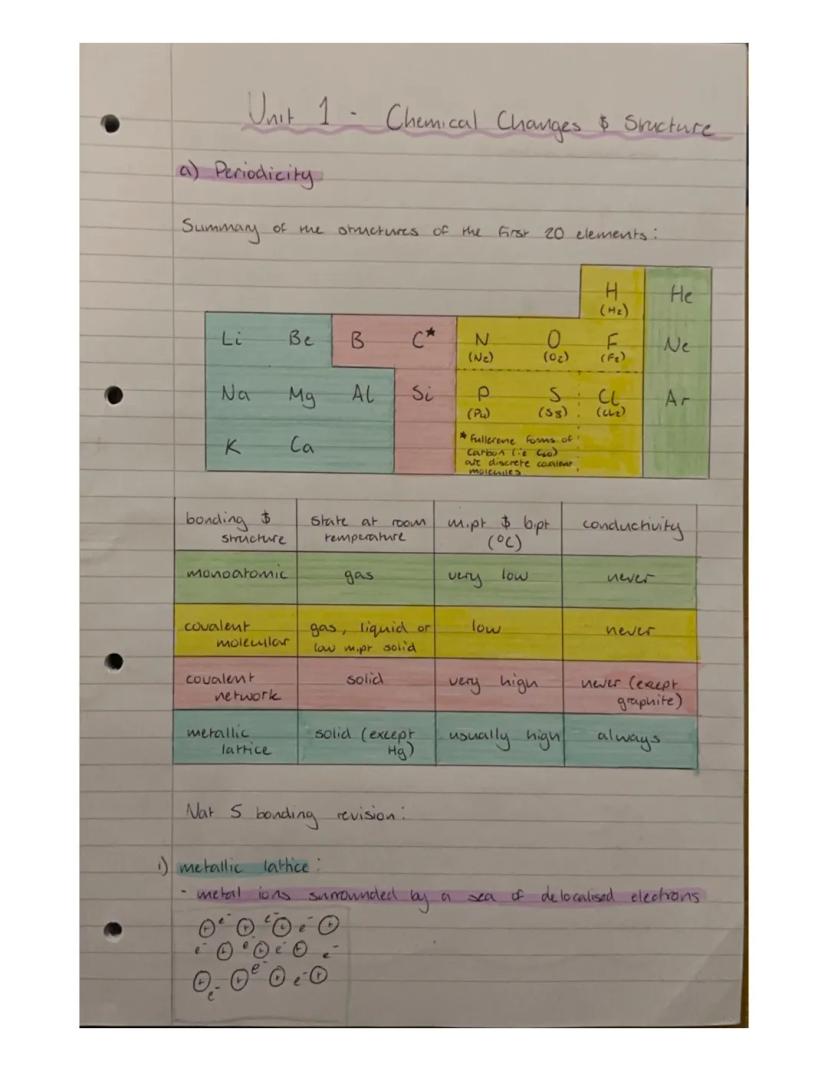 Unit 1 - Chemical Changes & Structure
a) Periodicity
Summary of the structures of the first 20 elements:
H He
(H2)
Li Be B C* N O F Ne
(N2) (O2) (F2)
Na Mg Al Si P S Cl Ar
(P4) (S8) (Cl2)
K Ca
* fullerene forms of
carbon (i.e C60)
are discrete covalent
molecules.
bonding & structure state at room temperature m.pt & b.pt (°C) conductivity
monoatomic gas very low never
covalent molecular gas, liquid or low m.pt solid low never
covalent network solid very high never (except graphite)
metallic lattice solid (except Hg) usually high always
Nat 5 bonding revision:
i) metallic lattice:
- metal ions surrounded by a sea of delocalised electrons
+ e- + e- + e- +
e- + e- + e- + e-
+ e- + e- + e- +